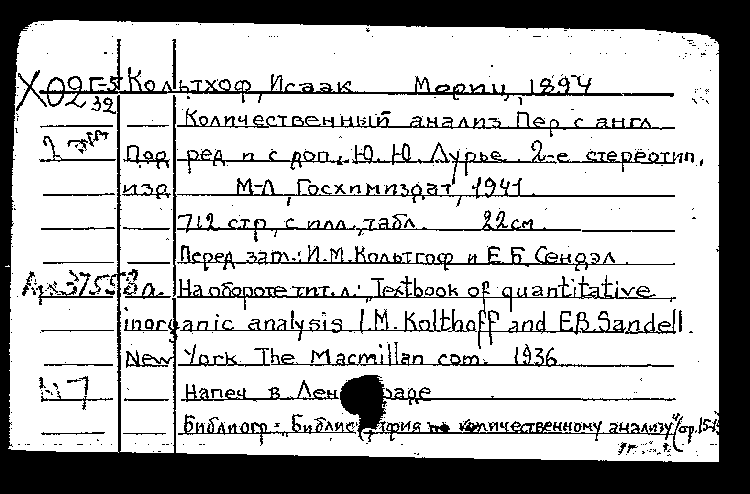 Х02 Г-5 Кольтхоф, Исаак Мориц, 1894
32 Количественный анализ Пер с англ
Под ред и с доп. Ю. Ю. Лурье. 2-е стереотип.
изд М-Л, Госхимиздат, 1941.
712 стр, с илл., табл. 22см.
Перед заг.: И.М. Кольтгоф и Е.Б. Сендэл.
37558 На обороте тит. л.: „Textbook of quantitative
inorganic analysis I.M. Kolthoff and E.B. Sandell.
New York The Macmillan com. 1936
Напеч в
Библиогр: „ по количественному анализу" (стр.